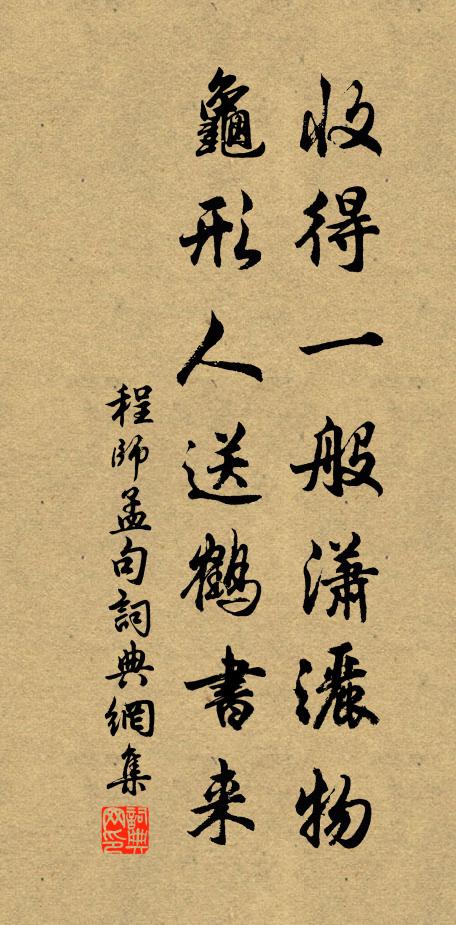 收得一般潇灑物
龜形人送鶴書来
程師孟句詞典網集
詞典網印